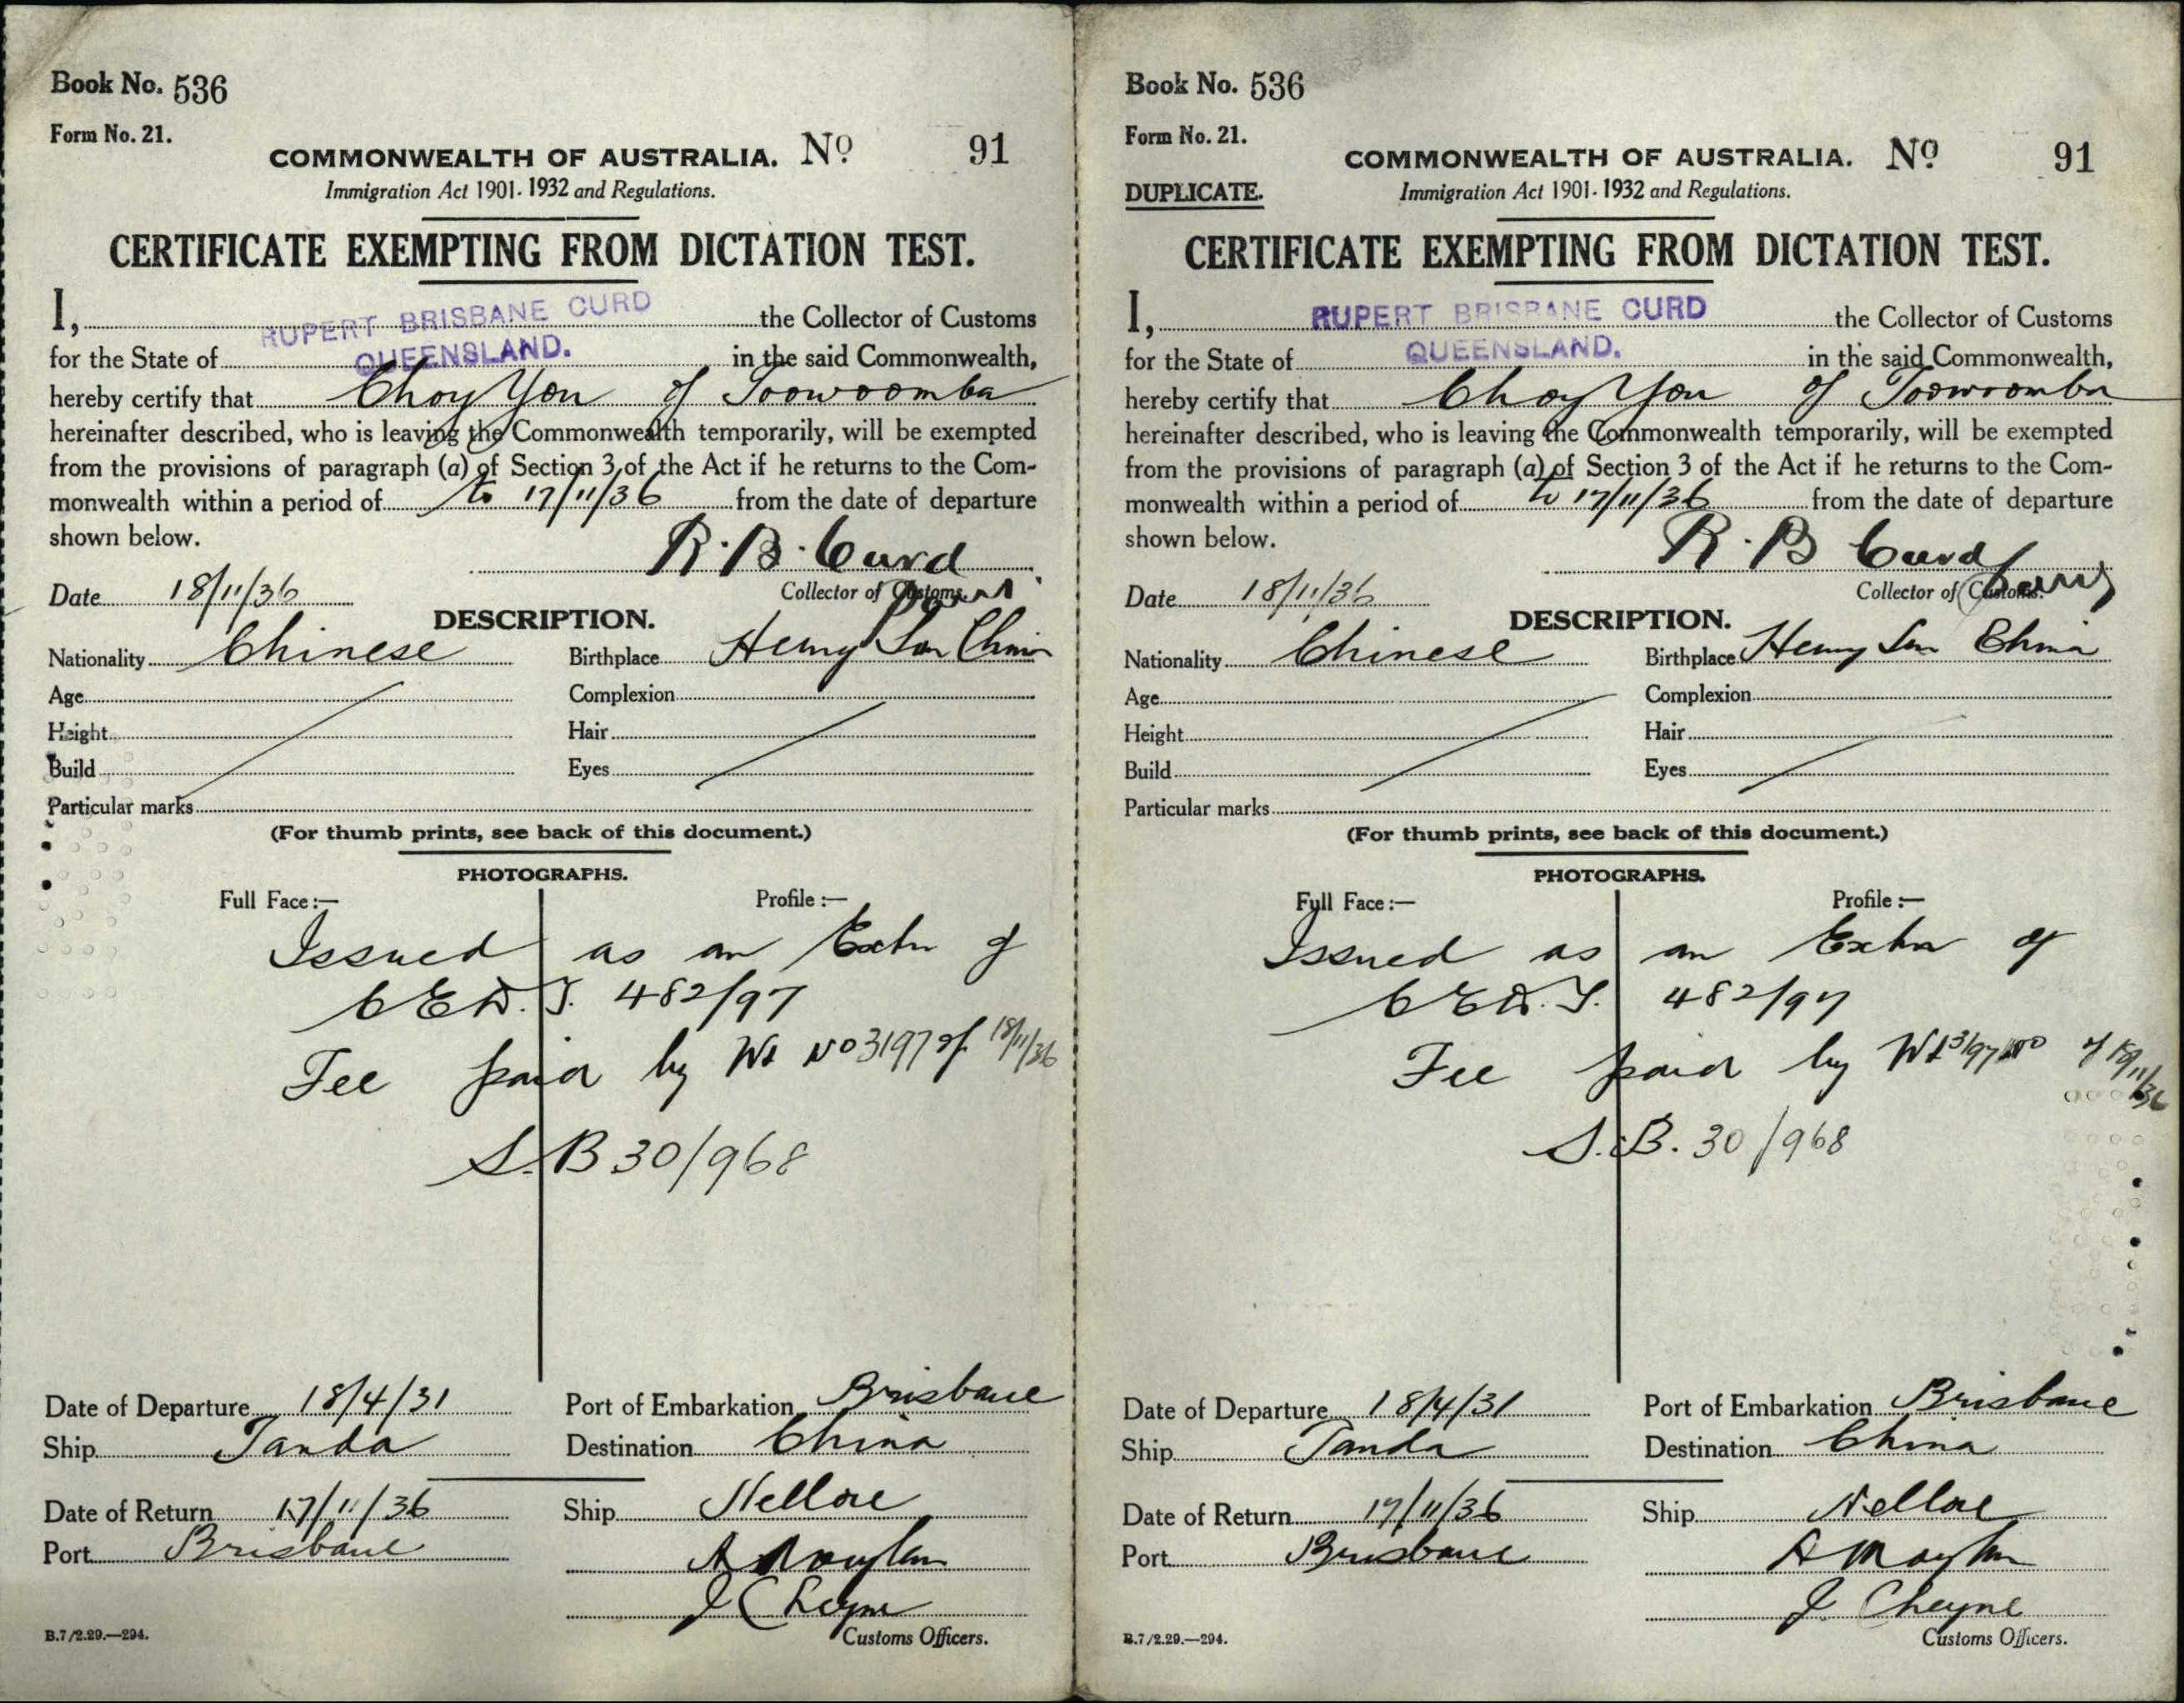 Book No. 536
Form No. 21.
COMMONWEALTH OF AUSTRALIA. No 91
Immigration Act 1901-1932 and Regulations.
CERTIFICATE EXEMPTING FROM DICTATION TEST.
I, RUPERT BRISBANE CURD the Collector of Customs
for the State of QUEENSLAND. in the said Commonwealth,
hereby certify that Choy You of Toowoomba
hereinafter described, who is leaving the Commonwealth temporarily, will be exempted
from the provisions of paragraph (a) of Section 3 of the Act if he returns to the Com-
monwealth within a period of to 17/11/36 from the date of departure
shown below.
R. B. Curd
Date 18/11/36 Collector of Customs.
DESCRIPTION.
Nationality Chinese Birthplace Heung San China
Age Complexion
Height Hair
Build Eyes
Particular marks
(For thumb prints, see back of this document.)
PHOTOGRAPHS.
Full Face :— Profile :—
Issued as an Extn of
C.E.D.T. 482/97
Fee paid by No 3197 of 18/11/36
S.B 30/968
Date of Departure 18/4/31 Port of Embarkation Brisbane
Ship Tanda Destination China
Date of Return 17/11/36 Ship Nellore
Port Brisbane
J Cheyne
B.7/2.29.—294. Customs Officers.
Book No. 536
Form No. 21.
COMMONWEALTH OF AUSTRALIA. No 91
DUPLICATE. Immigration Act 1901-1932 and Regulations.
CERTIFICATE EXEMPTING FROM DICTATION TEST.
I, RUPERT BRISBANE CURD the Collector of Customs
for the State of QUEENSLAND. in the said Commonwealth,
hereby certify that Choy You of Toowoomba
hereinafter described, who is leaving the Commonwealth temporarily, will be exempted
from the provisions of paragraph (a) of Section 3 of the Act if he returns to the Com-
monwealth within a period of to 17/11/36 from the date of departure
shown below.
R. B Curd
Date 18/11/36 Collector of Customs.
DESCRIPTION.
Nationality Chinese Birthplace Heung San China
Age Complexion
Height Hair
Build Eyes
Particular marks
(For thumb prints, see back of this document.)
PHOTOGRAPHS.
Full Face :— Profile :—
Issued as an Extn of
C.E.D.T. 482/97
Fee paid by 3197 of 18/11/36
S.B. 30/968
Date of Departure 18/4/31 Port of Embarkation Brisbane
Ship Tanda Destination China
Date of Return 17/11/36 Ship Nellore
Port Brisbane
J. Cheyne
B.7/2.29.—294. Customs Officers.